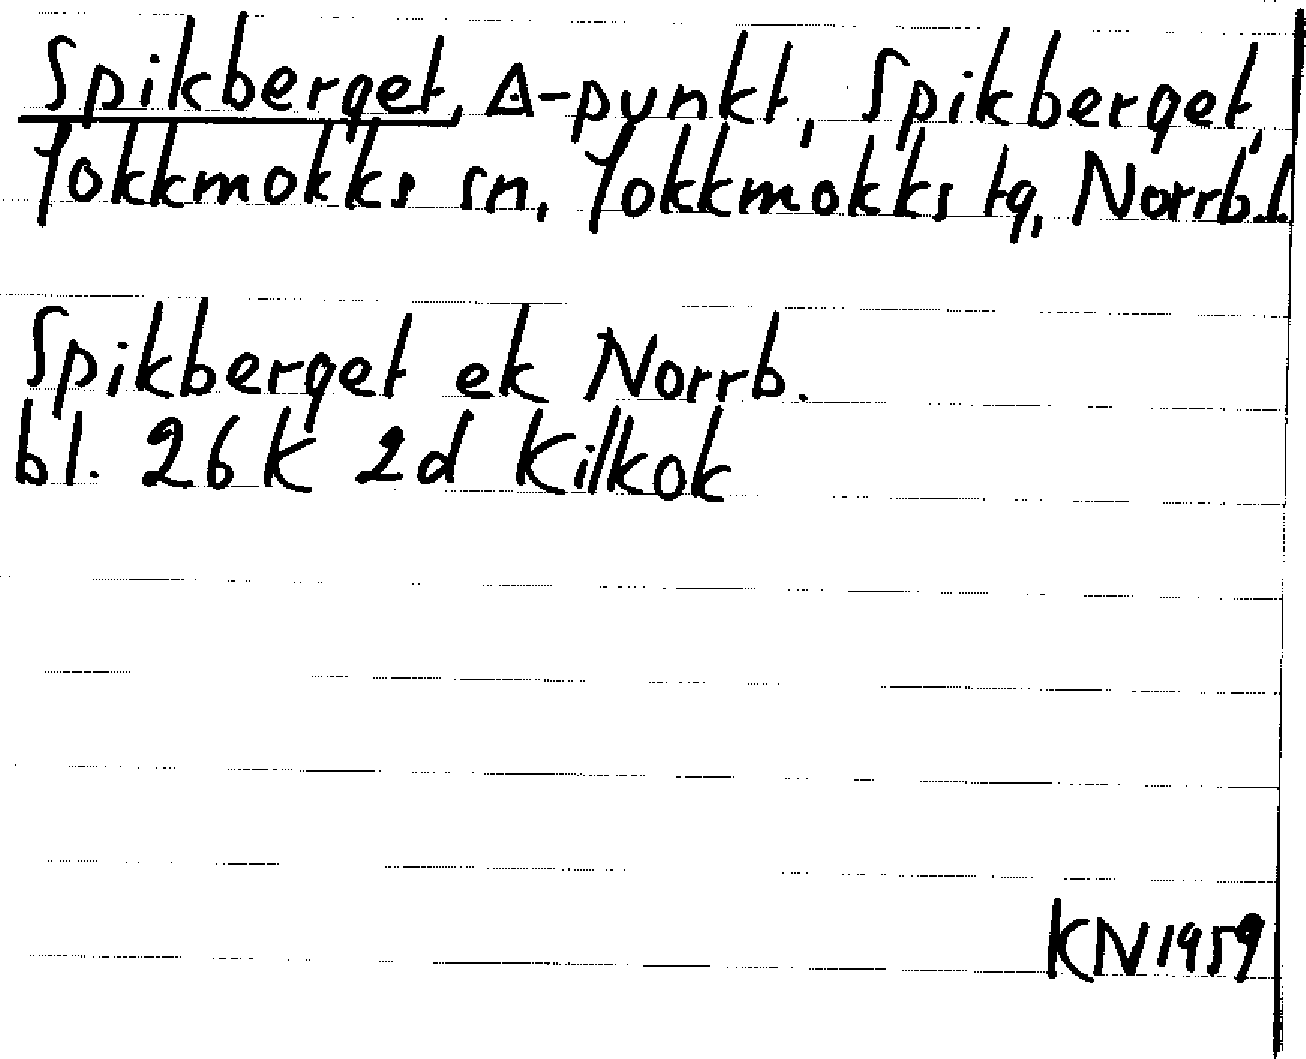 Spikberget, Δ-punkt, Spikberget,
Jokkmokks sn, Jokkmokks tg, Norrb.l.
Spikberget ek Norrb.
bl. 26 K 2d Kilkok
KN 1959